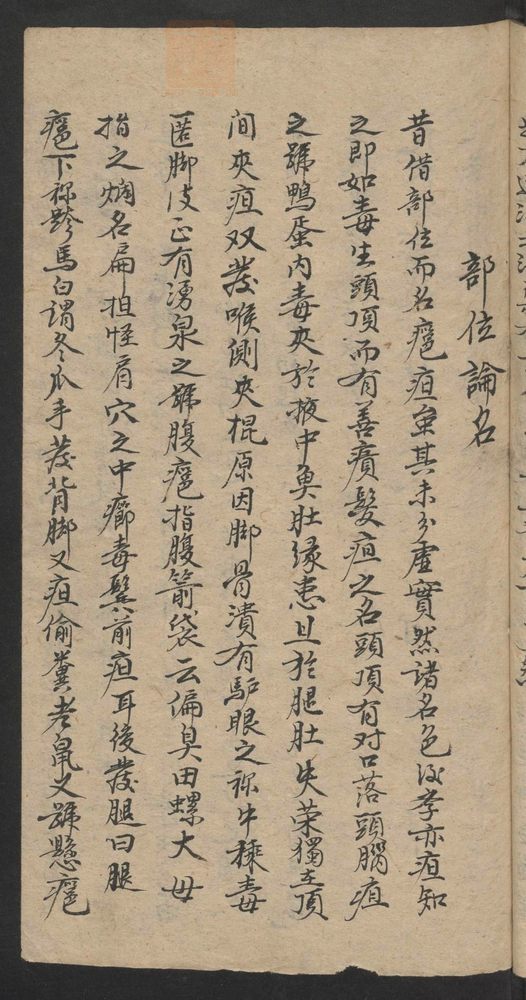 部位論名
昔借部位而名瘡疽虽其未分虚實然諸名色後李亦疽知
之即如毒生頭頂而有善癀髮疽之名頭頂有对口落頭腦疽
之號鴨蛋内毒夾於掖中奥肚缘患且於腿肚失荣獨在頂
间夾疽双發喉側夾棍原因脚骨潰有駈眼之称牛𣖙毒
匿脚皮正有湧泉之號腹瘡指腹箭袋云偏臭田螺大毋
指之㷫名扁担怪肩穴之中癤毒鬓前疽耳後發腿曰腿
瘡下称跨馬白謂冬瓜手發背脚又疽偷糞老鼠又號懸瘡